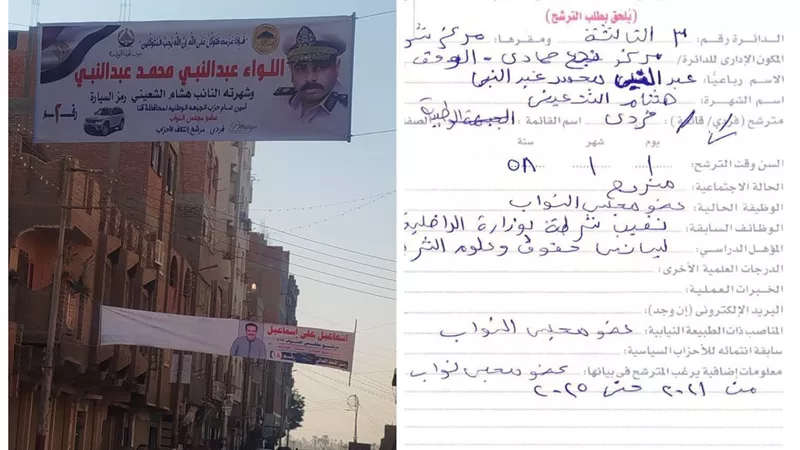 ﴿فإذا عزمت فتوكل على الله إن الله يحب المتوكلين﴾
اللواء عبدالنبي محمد عبدالنبي
وشهرته النائب هشام الشعيني رمز السيارة
أمين عام حزب الجبهه الوطنيه لمحافظة قنا
عضو مجلس النواب
فردى مرشح إئتلاف الأحزاب
رقم ٢
إسماعيل على إسماعيل
(يُلحق بطلب الترشح)
الدائرة رقم: ٣ الثالثة ومقرها: مركز
المكون الإدارى للدائرة: مركز نجع حمادى - الوقف
الاسم رباعيًا: عبد النبى محمد عبد النبى
اسم الشهرة: هشام الشعينى
مترشح (فردي/ قائمة): فردى اسم القائمة: الجبهة الوطنية الصف
يوم شهر سنة
السن وقت الترشح: ١ ١ ٥٨
الحالة الاجتماعية: متزوج
الوظيفة الحالية: عضو مجلس النواب
الوظائف السابقة: نقيب شرطة بوزارة الداخلية
المؤهل الدراسي: ليسانس حقوق وعلوم الشر
الدرجات العلمية الأخرى:
الخبرات العملية:
البريد الإلكترونى (إن وجد):
المناصب ذات الطبيعة النيابية: عضو مجلس النواب
سابقة انتمائه للأحزاب السياسية:
معلومات إضافية يرغب المترشح في بيانها: عضو مجلس نواب
من ٢٠٢١ حتى ٢٠٢٥